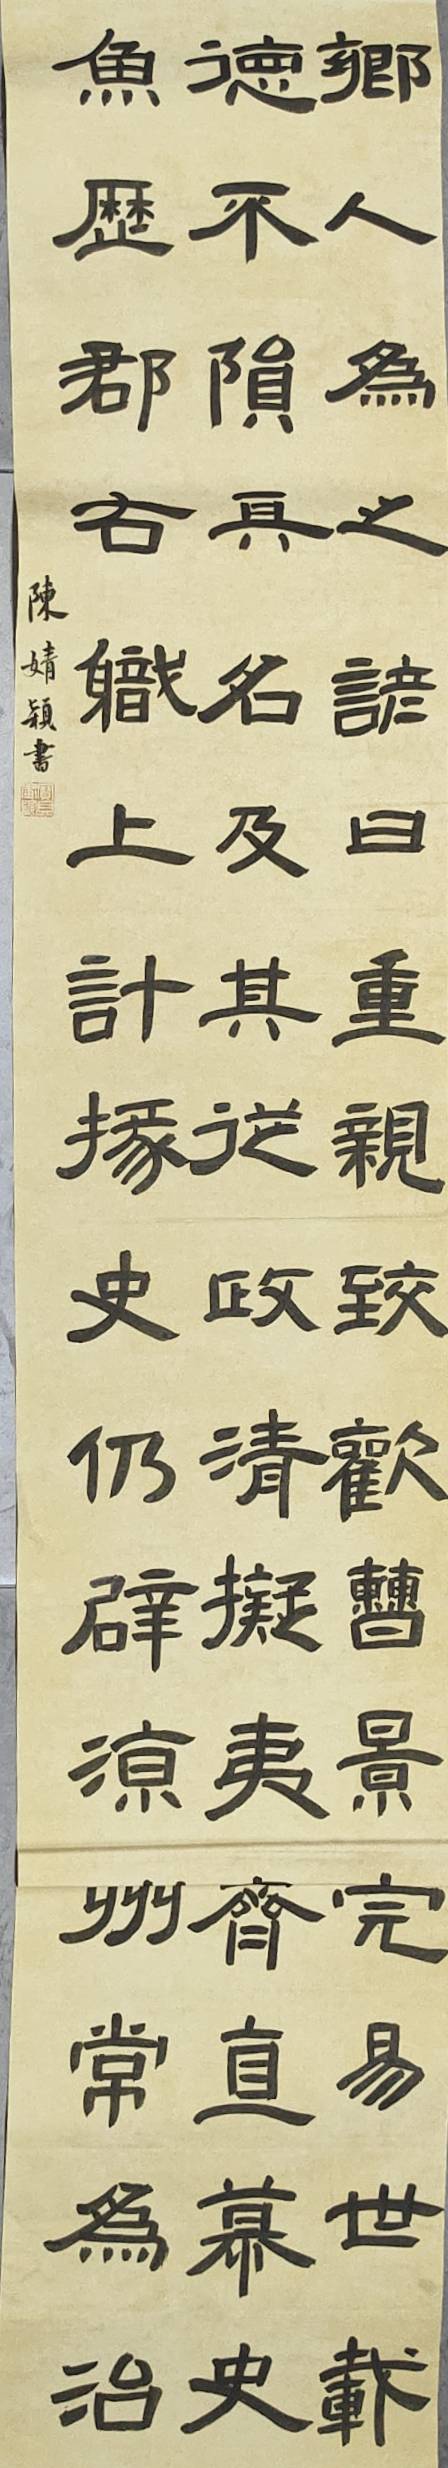 鄉人為之諺曰重親致歡曹景完易世載
德不隕其名及其從政清擬夷齊直慕史
魚歷郡右職上計掾史仍辟涼州常為治
陳婧穎書